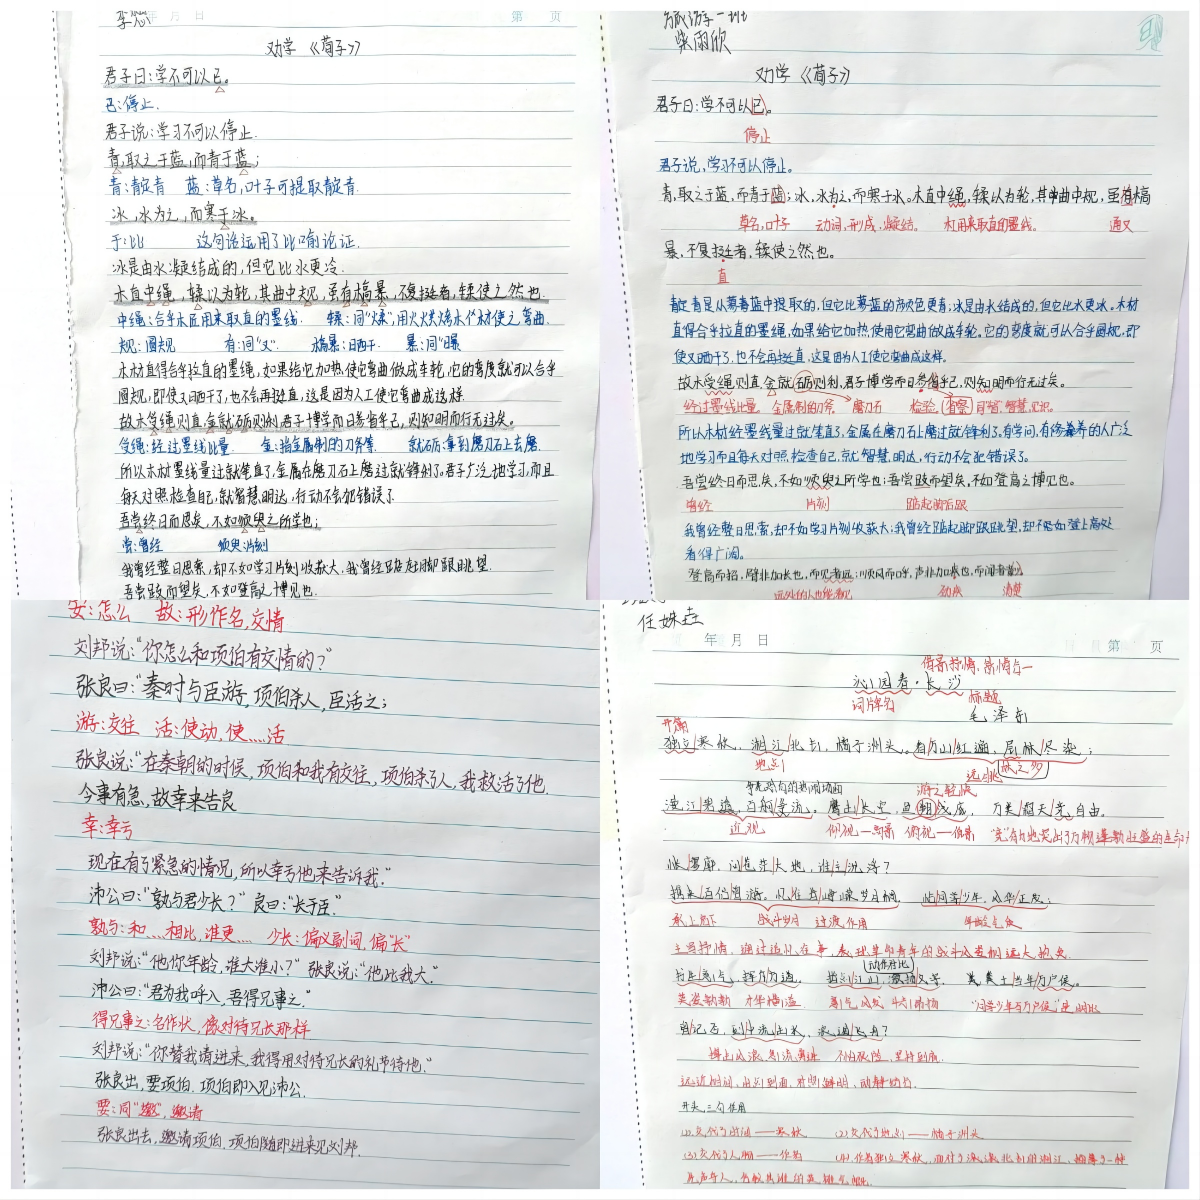 李慰
年 月 日
第 页
劝学 《荀子》
君子曰:学不可以已。
已:停止.
君子说:学习不可以停止.
青,取之于蓝,而青于蓝;
青:靛青 蓝:草名,叶子可提取靛青.
冰,水为之,而寒于冰。
于:比 这句话运用了比喻论证.
冰是由水凝结成的,但它比水更冷.
木直中绳,𫐓以为轮,其曲中规,虽有槁暴,不复挺者,𫐓使之然也.
规:圆规 有:同“又” 槁暴:日晒干. 暴:同“曝
木材直得合乎拉直的墨绳,如果给它加热使它弯曲做成车轮,它的弯度就可以合乎
圆规,即使又晒干了,也不会再挺直,这是因为人工使它弯曲成这样.
故木受绳则直,金就砺则利,君子博学而日参省乎己,则知明而行无过矣。
受绳:经过墨线比量. 金:指金属制的刀斧等. 就砺:拿到磨刀石上去磨
所以木材墨线量过就笔直了,金属在磨刀石上磨过就锋利了.君子广泛地学习,而且
每天对照检查自己,就智慧明达,行动不会犯错误了
吾尝终日而思矣,不如须臾之所学也;
尝:曾经 须臾:片刻
我曾经整日思索,却不如学习片刻收获大,我曾经踮起脚跟眺望.
吾尝跂而望矣,不如登高之博见也.
旅游一班
柴雨欣
劝学 《荀子》
君子曰:学不可以已。
停止
君子说,学习不可以停止。
青,取之于蓝,而青于蓝;冰,水为之,而寒于水。木直中绳,𫐓以为轮,其曲中规,虽有槁
草名,叶子 动词,形成、凝结。 木工用来取直的墨线。 通又
暴,不复挺者,𫐓使之然也。
直
靛青是从蓼蓝中提取的,但它比蓼蓝的颜色更青;冰是由水结成的,但它比水更冰。木材
直得合乎拉直的墨绳,如果给它加热使用它弯曲做成车轮,它的弯度就可以合乎圆规,即
使又晒干了,也不会再挺直,这是因为人工使它弯曲成这样。
故木受绳则直,金就砺则利,君子博学而日参省乎己,则知明而行无过矣。
经过墨线比量。 金属制的刀斧 磨刀石 检验、省察 同“智”,智慧,见识。
所以木材经墨线量过就笔直了,金属在磨刀石上磨过就锋利了。有学问、有修养的人广泛
地学习而且每天对照检查自己,就智慧明达,行动不会犯错误了。
吾尝终日而思矣,不如须臾之所学也;吾尝跂而望矣,不如登高之博见也。
曾经 片刻 踮起脚后跟
我曾经整日思索,却不如学习片刻收获大;我曾经踮起脚跟眺望,却不如登上高处
看得广阔。
登高而招,臂非加长也,而见者远;顺风而呼,声非加疾也,而闻者彰。
远处的人也能看见 劲疾 清楚
安:怎么 故:形作名,交情
刘邦说:“你怎么和项伯有交情的?”
张良曰:“秦时与臣游,项伯杀人,臣活之;
游:交往 活:使动,使....活
张良说:“在秦朝的时候,项伯和我有交往,项伯杀了人,我救活了他.
今事有急,故幸来告良
幸:幸亏
现在有了紧急的情况,所以幸亏他来告诉我.”
沛公曰:“孰与君少长?” 良曰:“长于臣.”
孰与:和....相比,谁更.... 少长:偏义副词 偏“长”
刘邦说:“他你年龄,谁大谁小?” 张良说:“他比我大.”
沛公曰:“君为我呼入,吾得兄事之.”
得兄事之:名作状,像对待兄长那样
刘邦说:“你替我请进来,我得用对待兄长的礼节待他.”
张良出,要项伯.项伯即入见沛公.
要:同“邀”,邀请
张良出去,邀请项伯,项伯随即进来见刘邦.
任姝垚
年 月 日
第 页
借景抒情,景情合一
沁园春·长沙
词牌名 标题
毛泽东
独立寒秋,湘江北去,橘子洲头。看万山红遍,层林尽染;
地点 远眺
漫江碧透,百舸争流。鹰击长空,鱼翔浅底,万类霜天竞自由。
近视 仰视
怅寥廓,问苍茫大地,谁主沉浮?
携来百侣曾游。忆往昔峥嵘岁月稠,恰同学少年,风华正茂;
承上启下 战斗岁月 过渡作用
书生意气,挥斥方遒。指点江山,激扬文字,粪土当年万户侯。
动作对比
曾记否,到中流击水,浪遏飞舟?
开头三句作用
(1)交代了时间——寒秋 (2)交代了地点——橘子洲头
(3)交代了人物——作者